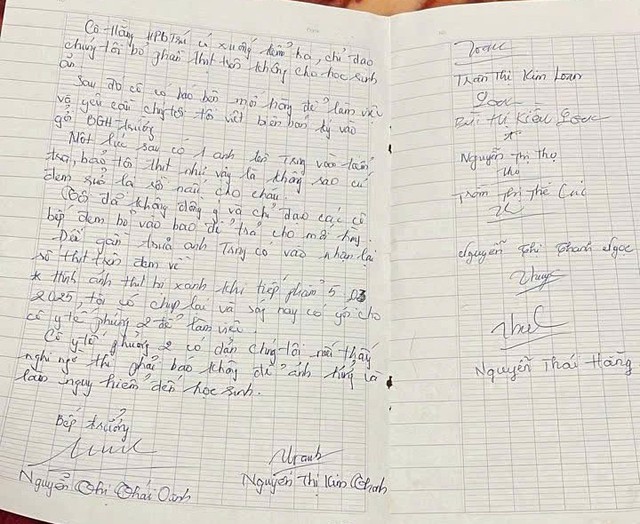 Cô Hằng HPBTrú có xuống kiểm tra, chỉ đạo
chúng tôi bỏ phần thịt trên không cho học sinh
ăn
Sau đó cô có báo bên mối hàng để làm việc
và yêu cầu chúng tôi tôi viết biên bản ký vào
gởi BGH trường
Một lúc sau có 1 anh tên Trung vào kiểm
tra, bảo tôi thịt như vậy là không sao cứ
đem rửa là rồi nấu cho cháu.
Cô đó không đồng ý và chỉ đạo các cô
bếp đem bỏ vào bao để trả cho mối hàng.
Đến gần trưa anh Trung có vào nhận lại
số thịt trên đem về
* Hình ảnh thịt bị xanh khi tiếp phẩm 5 03
2025, tôi có chụp lại và sáng nay có gởi cho
cô y tế phường 2 để làm việc.
Cô y tế phường 2 có dặn chúng tôi nếu thấy
nghi ngờ thì phải báo không để ảnh hưởng và
làm nguy hiểm đến học sinh.
Bếp trưởng
Nguyễn Thị Thái Oanh
Nguyễn Thị Kim Oanh
Loan
Trần Thị Kim Loan
Loan
Bùi Thị Kiều Loan
Nguyễn Thị Thọ
Thọ
Trần Thị Thế Cúc
Nguyễn Thị Thanh Ngọc
Nguyễn Thái Hằng